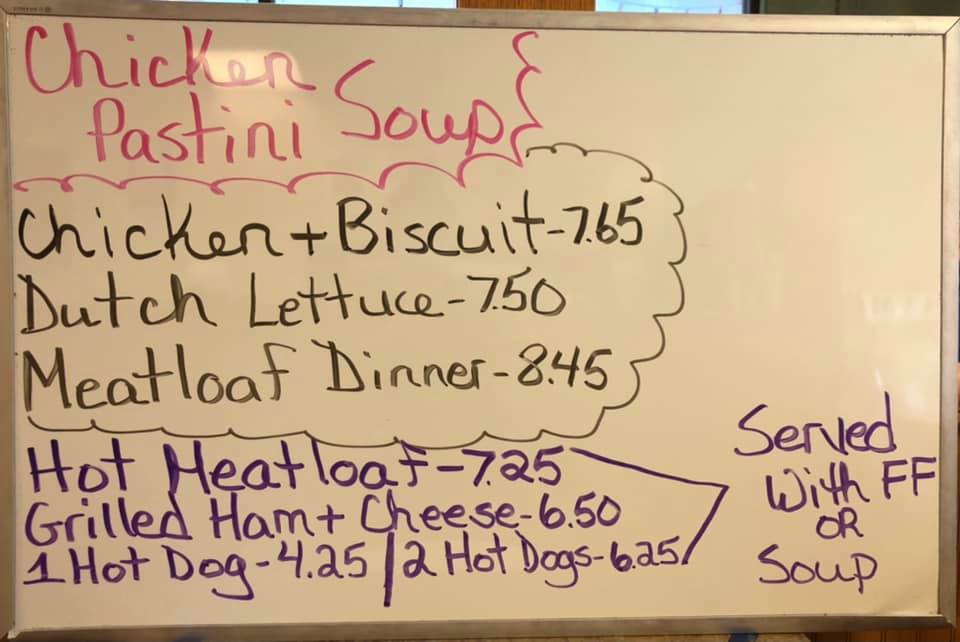 Chicken
Pastini Soup
Chicken + Biscuit - 7.65
Dutch Lettuce - 7.50
Meatloaf Dinner - 8.45
Hot Meatloaf - 7.25
Grilled Ham + Cheese - 6.50
1 Hot Dog - 4.25 / 2 Hot Dogs - 6.25
Served
With FF
OR
Soup